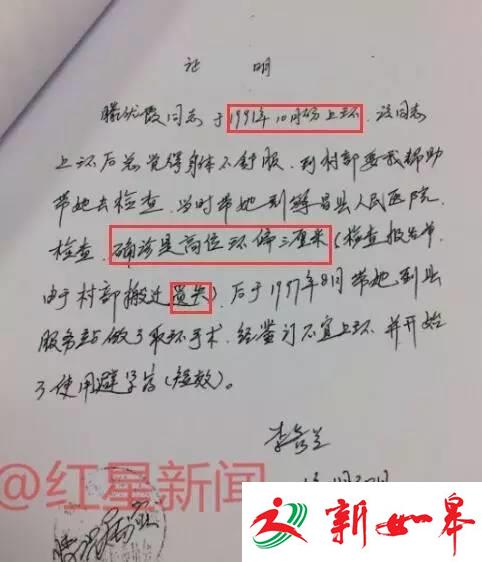 证 明
同志于1991年10月份上环,该同志
上环后总觉得身体不舒服,到村部要我帮助
带她去检查,当时带她到县人民医院
检查,确诊是高位环偏三厘米(检查报告单
由于村部搬迁遗失),后于1997年8月带她到县
服务站做了取环手术,经鉴订不宜上环,并开始
了使用避孕药(短效)。
@红星新闻
新如皋